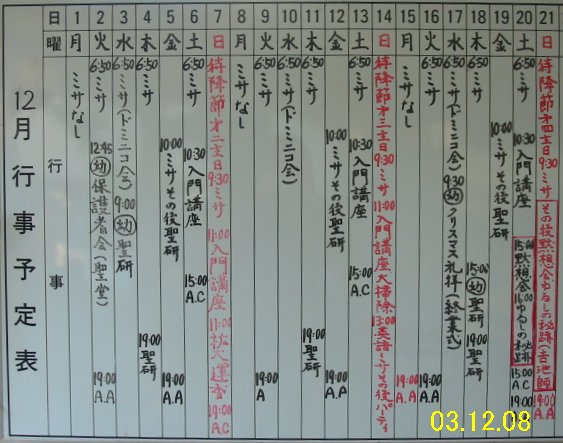 12月行事予定表
日
曜
行事
1
月
ミサなし
2
火
6:50 ミサ
12:45 幼 保護者会(聖堂)
19:00 A.A
3
水
6:50 ミサ(ドミニコ会)
9:00 幼 聖研
4
木
6:50 ミサ
19:00 聖研
5
金
10:00 ミサその後聖研
19:00 A.A
6
土
6:50 ミサ
10:30 入門講座
15:00 A.C
7
日
待降節才二主日 9:30 ミサ
11:00 入門講座
11:00
19:00 A.C
8
月
ミサなし
9
火
6:50 ミサ
19:00 A
10
水
6:50 ミサ(ドミニコ会)
11
木
6:50 ミサ
19:00 聖研
12
金
10:00 ミサその後聖研
19:00 A.A
13
土
6:50 ミサ
10:30 入門講座
15:00 A.C
14
日
待降節才三主日 9:30 ミサ
11:00 入門講座 大掃除
13:00 英語ミサその後パーティ
15
月
ミサなし
19:00 A.A
16
火
6:50 ミサ
19:00 A.A
17
水
6:50 ミサ(ドミニコ会)
9:30 幼 クリスマス礼拝(終業式)
18
木
6:50 ミサ
幼 聖研
19:00 聖研
19
金
10:00 ミサその後聖研
19:00 A.A
20
土
6:50 ミサ
10:30 入門講座
15:00 黙想会 ゆるしの秘跡
15:00 A.C
19:00
21
日
待降節才四主日 9:30 ミサ
その後黙想会ゆるしの秘跡(吉池師)
19:00 A.A
03.12.08